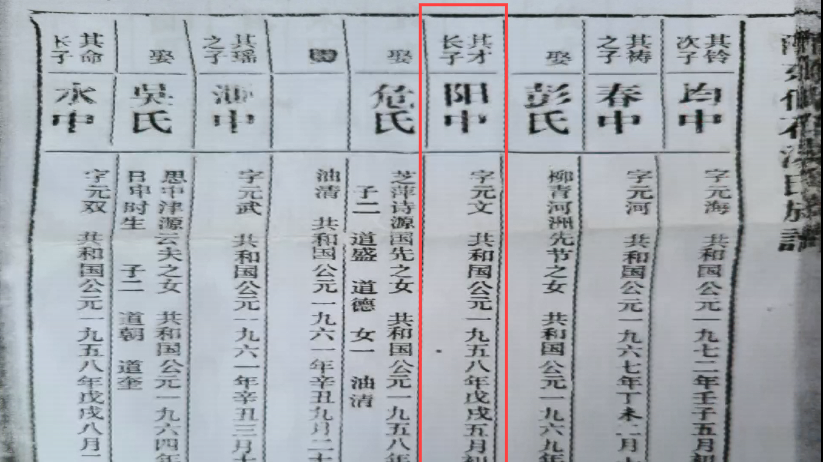 石
氏族譜
其铃
次子
均中
字元海 共和国公元一九七二年壬子五月初
其祷
之子
春中
字元河 共和国公元一九六七年丁未二月
娶
彭氏
柳青河洲先节之女 共和国公元一九六九年
其才
长子
阳中
字元文 共和国公元一九五八年戊戌五月初
娶
危氏
芝萍诗源国先之女 共和国公元一九五八年
子二 道盛 道德 女一 油清
油清 共和国公元一九六一年辛丑九月二十
其瑶
之子
中
字元武 共和国公元一九六一年辛丑三月十
娶
吳氏
思中津源云夫之女 共和国公元一九六四年
日申时生 子二 道朝 道奎
其命
长子
永中
字元双 共和国公元一九五八年戊戌八月二